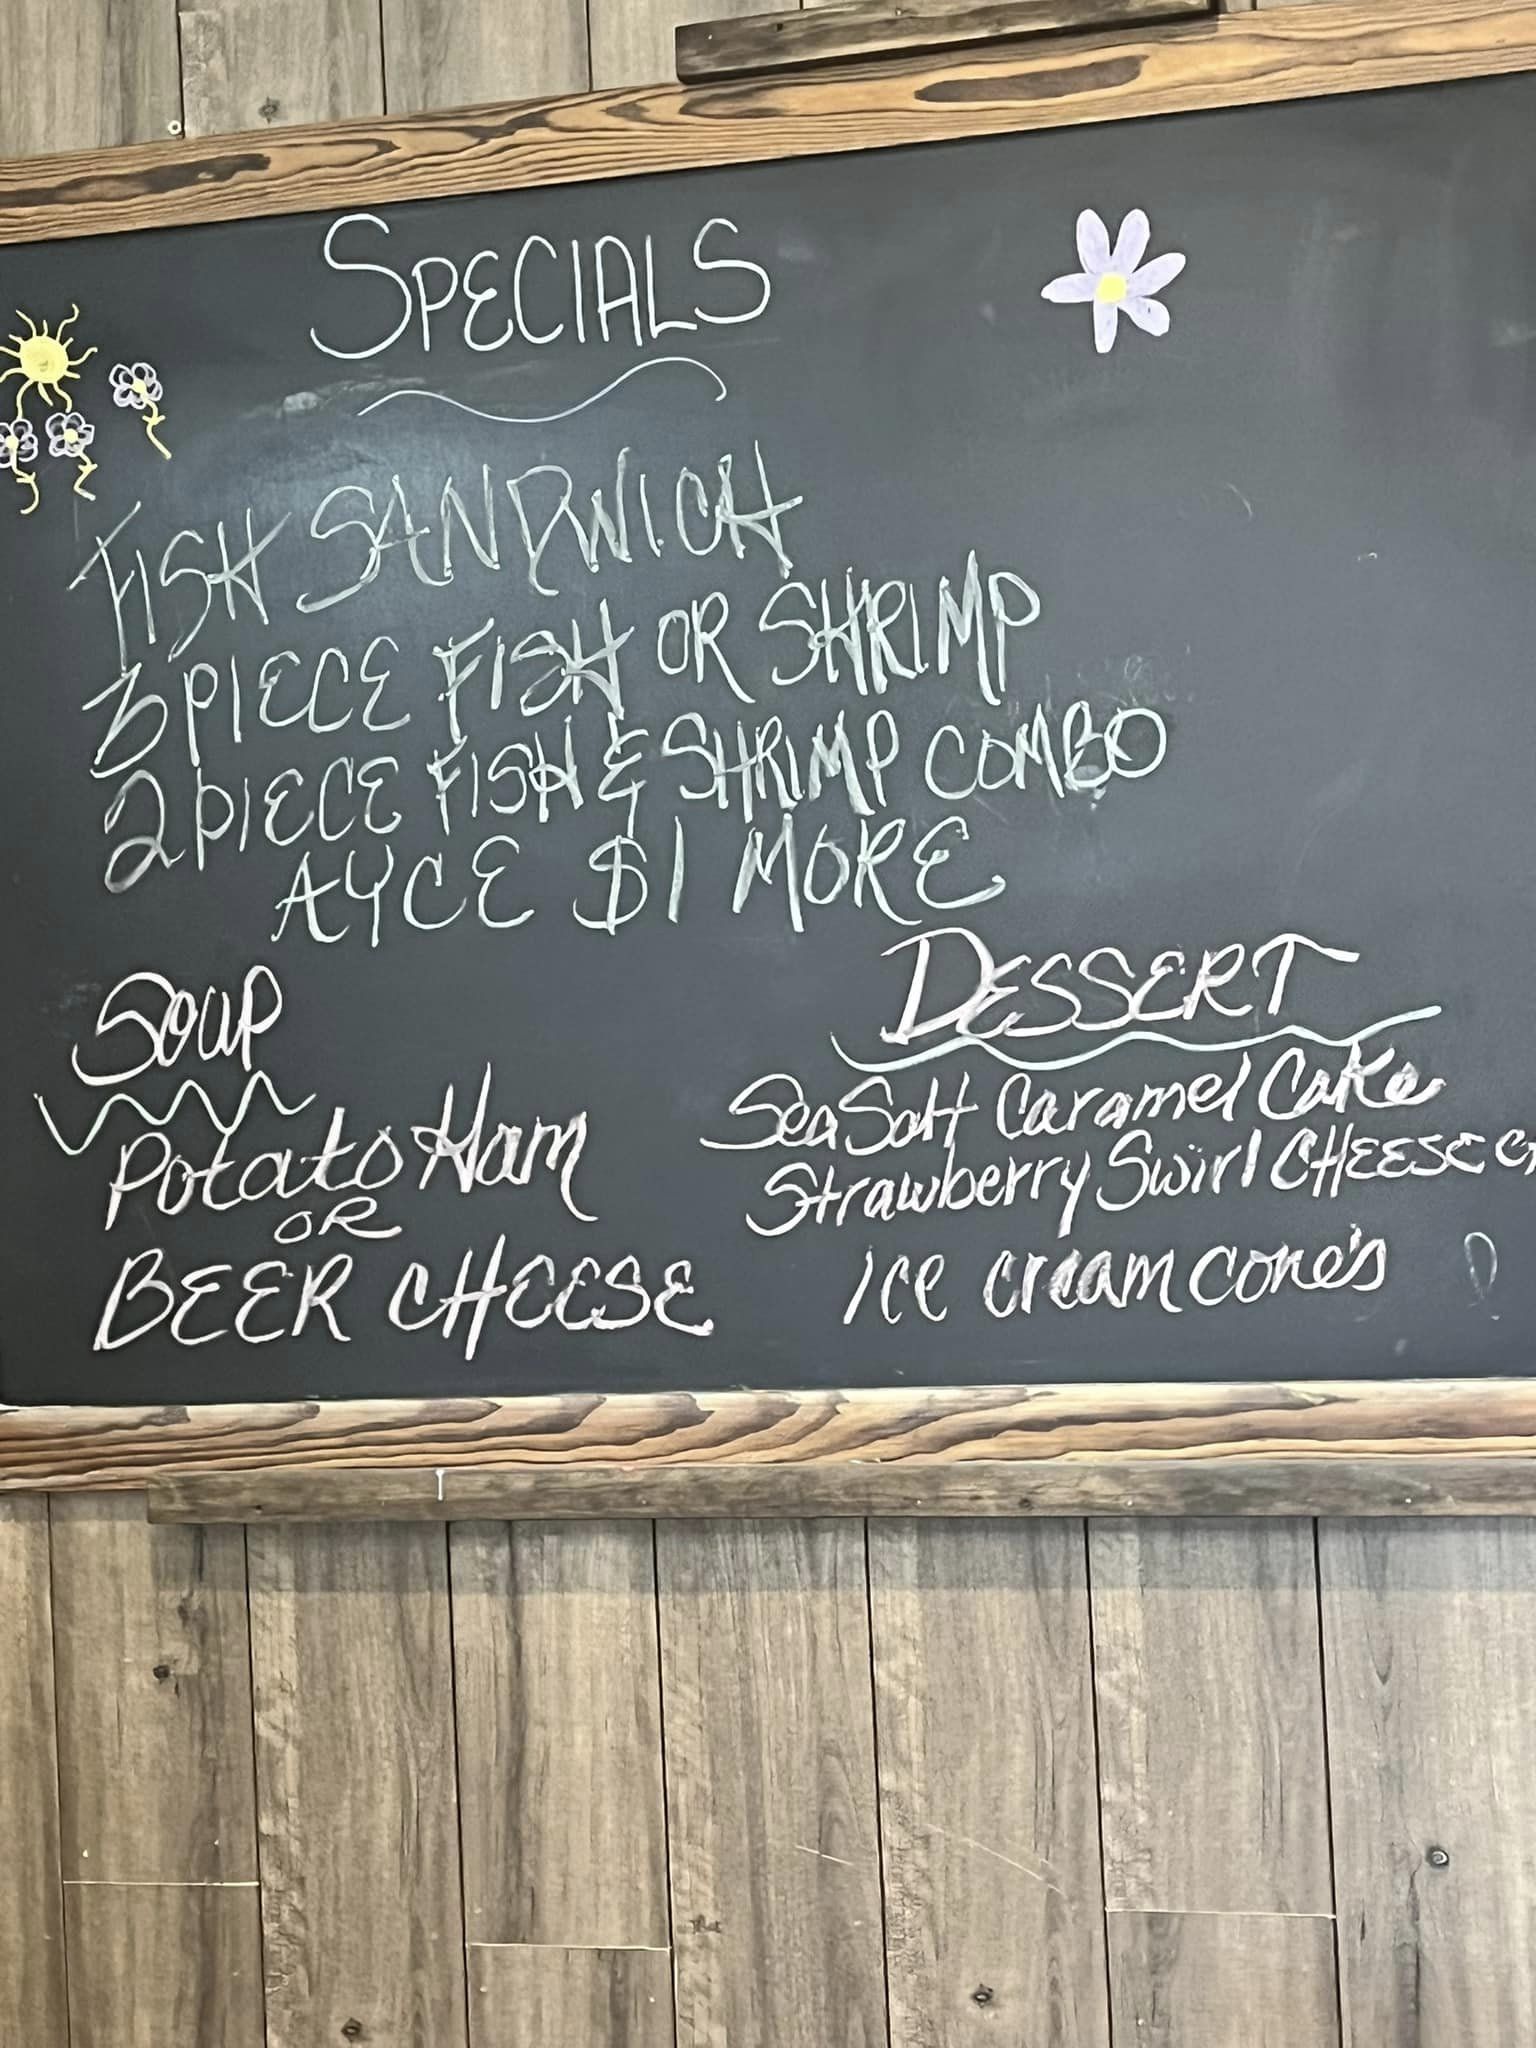 SPECIALS
FISH SANDWICH
3 PIECE FISH OR SHRIMP
2 PIECE FISH & SHRIMP COMBO
AYCE $1 MORE
SOUP
Potato Ham
OR
BEER CHEESE
DESSERT
Sea Salt Caramel Cake
Strawberry Swirl CHEESE
ice cream cone's